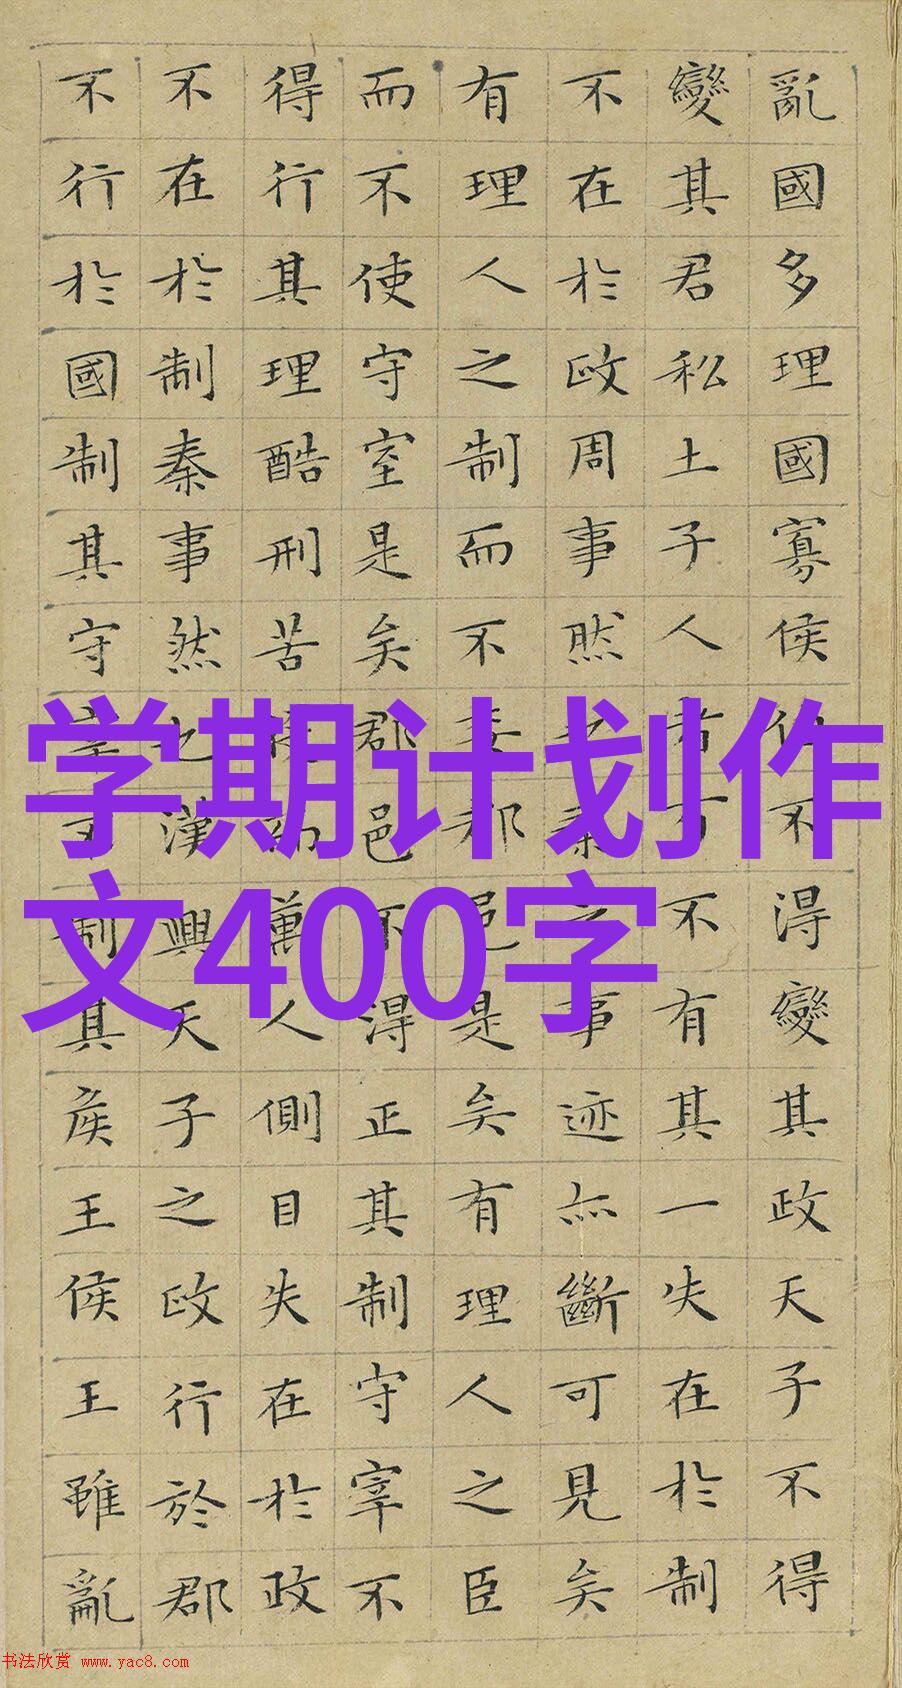 亂國多理國寡侯伯不得變其政天子不得
變其君私土子人者百不有其一失在於制
不在於政周事然也秦之事迹亦斷可見矣
有理人之制而不委郡邑是矣有理人之臣
而不使守宰是矣郡邑不得正其制守宰不
得行其理酷刑苦役而萬人側目失在於政
不在於制秦事然也漢興天子之政行於郡
不行於國制其守宰不制其侯王侯王雖亂
学期计划作
文400字
书法欣赏 www.yac8.com